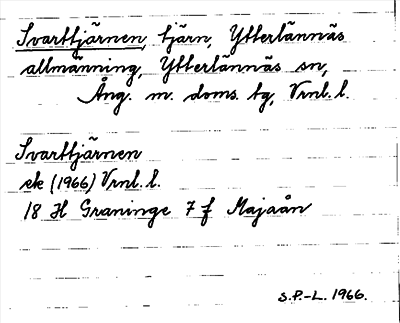 Svarttjärnen, tjärn, Ytterlännäs
allmänning, Ytterlännäs sn,
Ång. m. doms. tg, Vrnl. l.
Svarttjärnen
ek (1966) Vrnl. l.
18 H Graninge 7 f Majaån
S.P.-L. 1966.